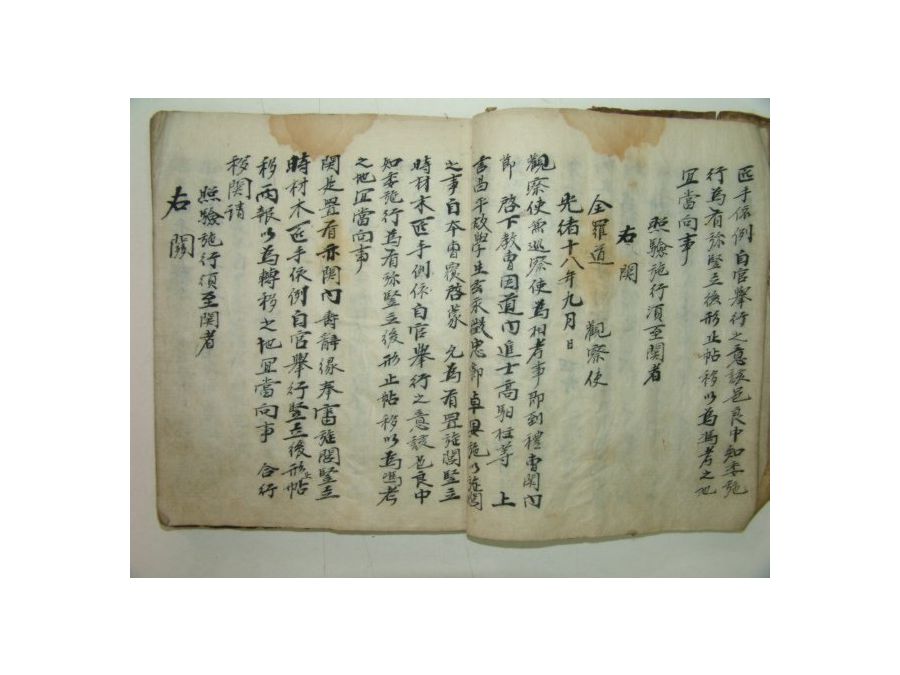 匠手依例自官擧行之意該邑良中知委施
行爲有旀竪立後形止帖移以爲馮考之地
宜當向事
照驗施行須至關者
右關
全羅道 觀察使
光緖十八年九月日
觀察使兼巡察使爲相考事卽到禮曺關內
節 啓下敎曺因道內進士高 等 上
言昌平故學生 忠節卓異施以旌閭
之事自本曺覆啓蒙 允爲有置旌閭竪立
時材木匠手依例自官擧行之意該邑良中
知委施行爲有旀竪立後形止帖移以爲馮考
之地宜當向事
關是置有亦關內 緣奉審旌閭竪立
時材木匠手依例自官擧行竪立後形止帖
移兩報以爲轉移之地宜當向事 合行
移關請
照驗施行須至關者
右關